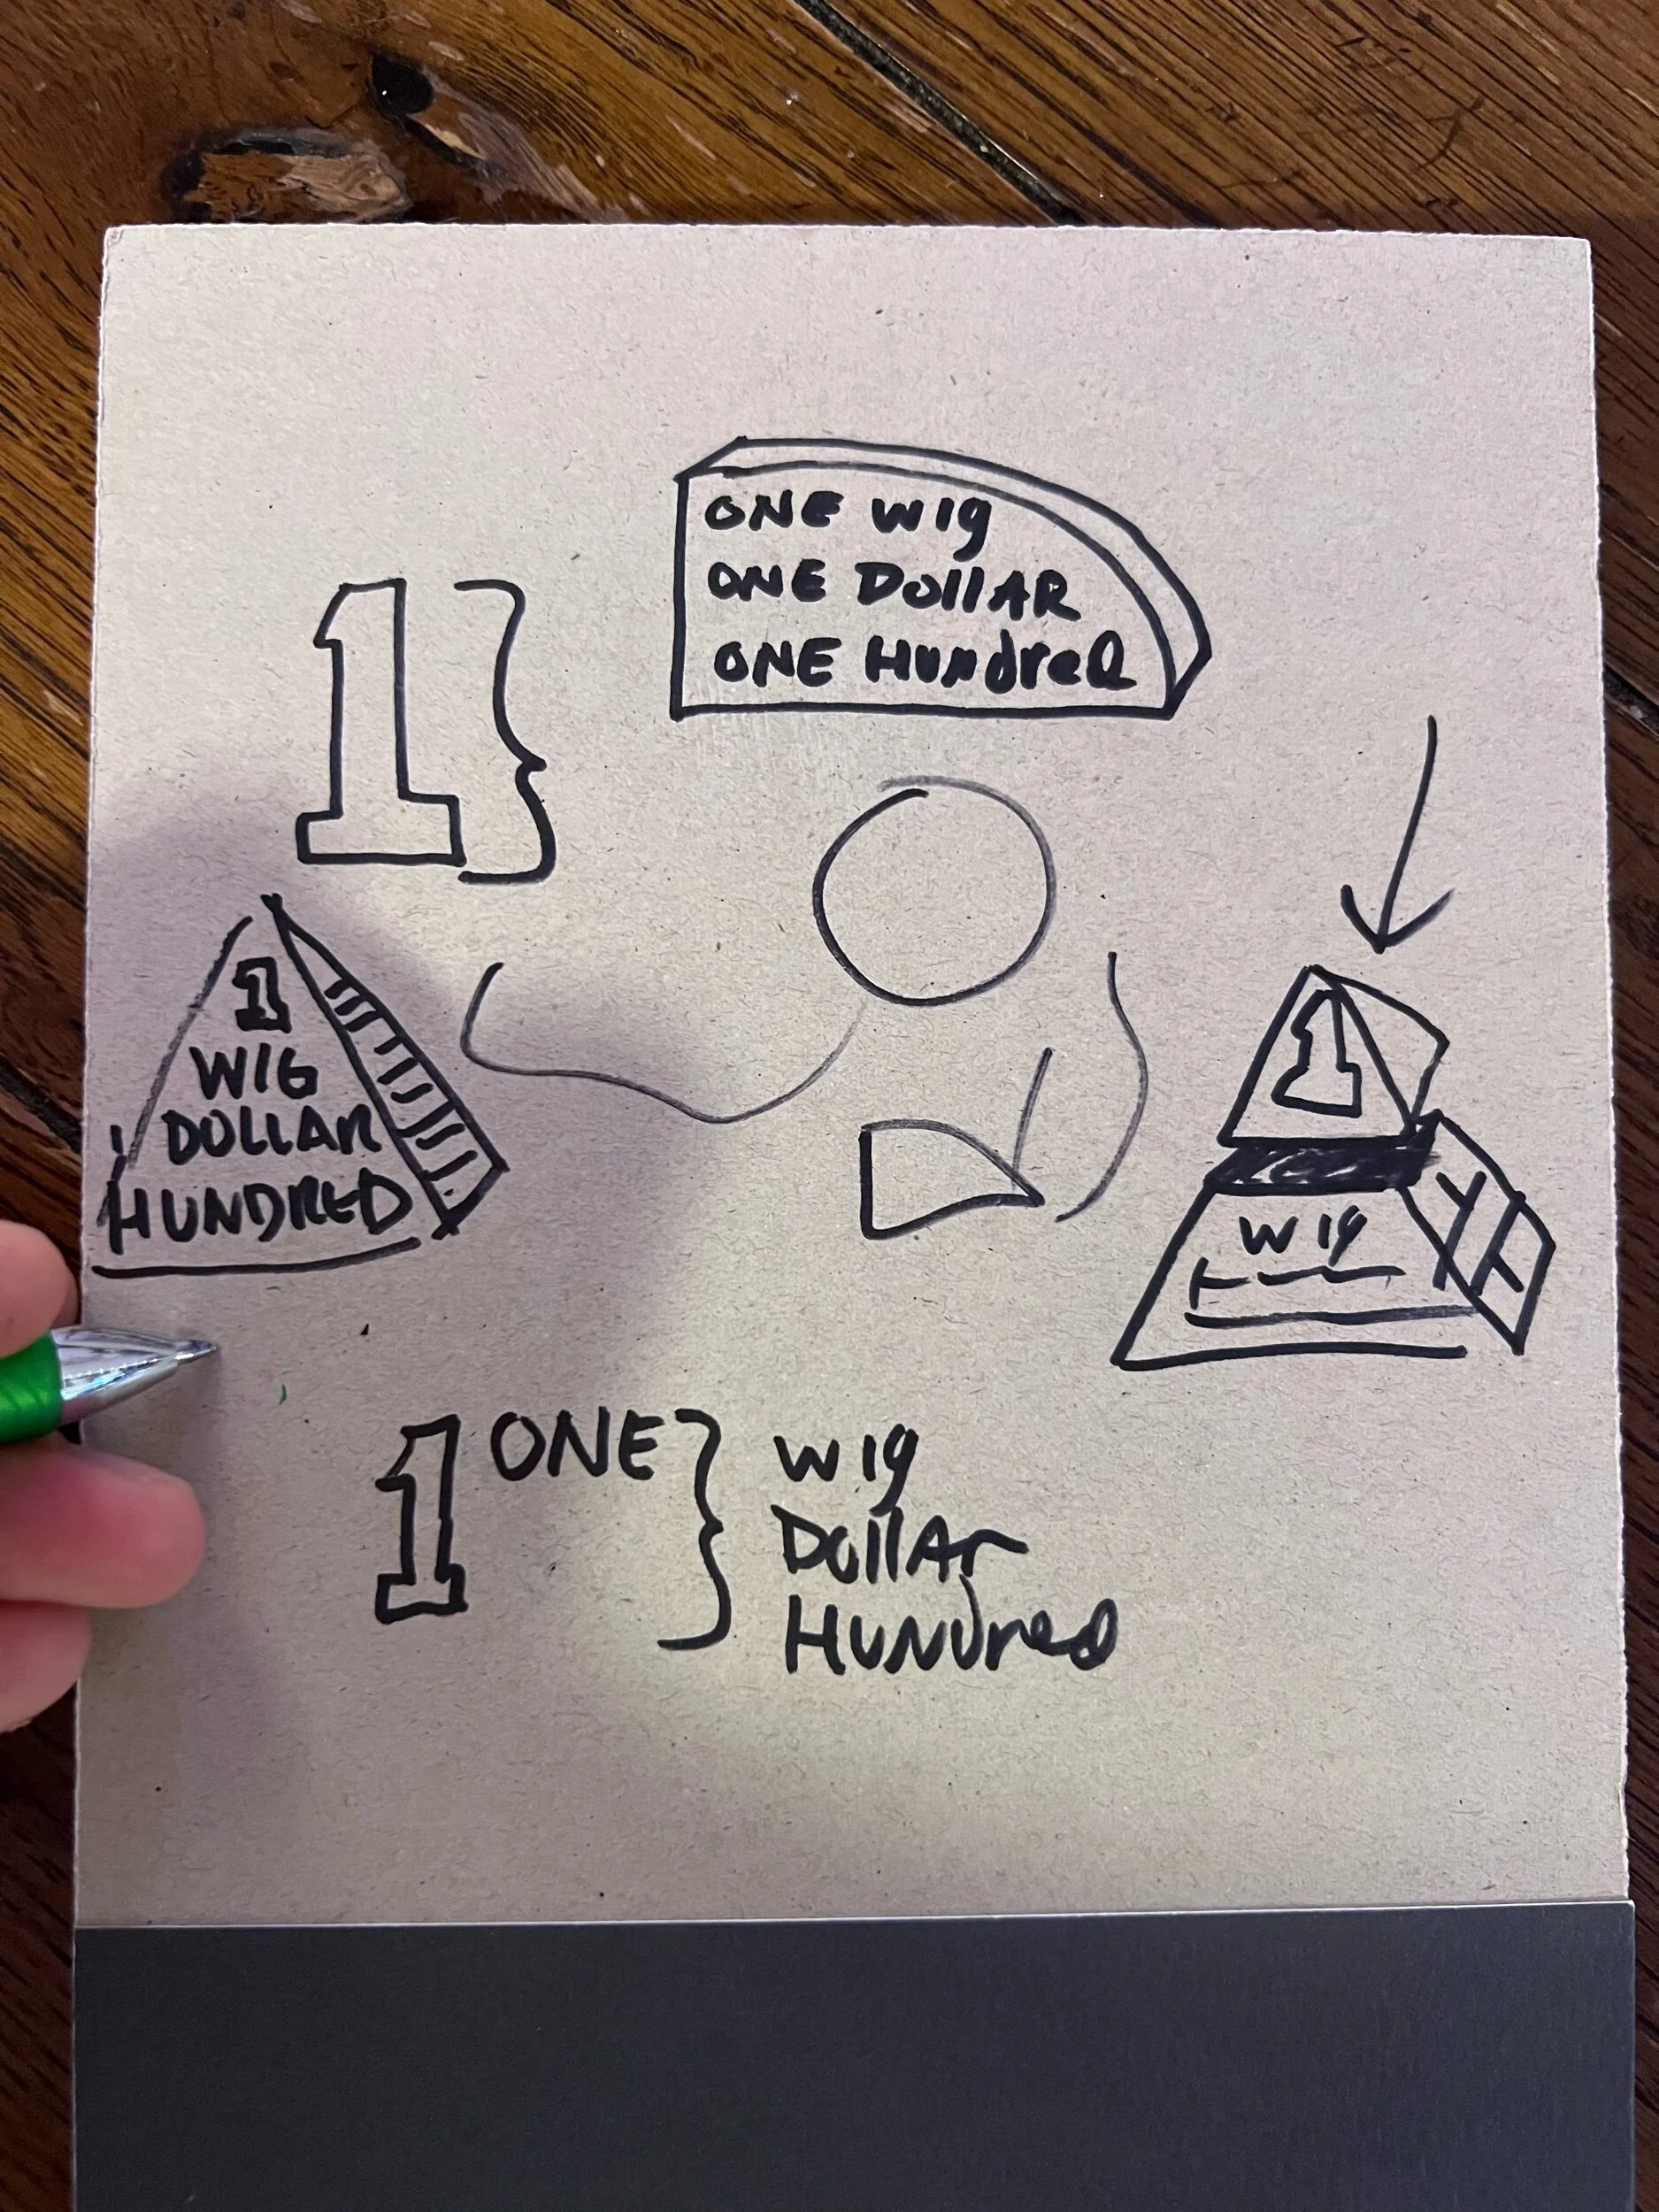 ONE wig
ONE DollAR
ONE HundreD
1
1
WIG
DOLLAR
HUNDRED
1
wig
1 ONE
wig
DollAr
HUNdred